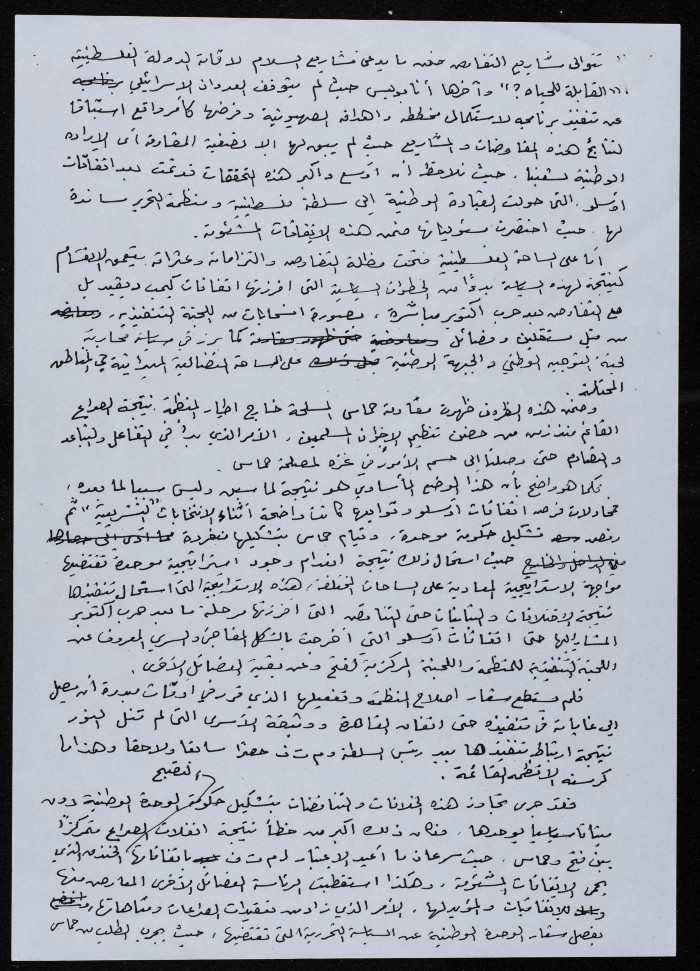 " تتوالى مشاريع التفاوض ضمن ما يدعى مشاريع السلام لاقامة الدولة الفلسطينية
"القابلة للحياة؟" وآخرها أنابوليس حيث لم يتوقف العدوان الاسرائيلي
عن تنفيذ برنامجه لاستكمال مخططه واهدافه الصهيونية وفرضها كأمر واقع استباقا
لنتائج هذه المفاوضات والمشاريع حيث لم يبق لها الا تصفية المقاومة أي الإرادة
الوطنية لشعبنا. حيث نلاحظ أن أوسع وأكبر هذه التحققات قد تمت بعد اتفاقات
أوسلو. التي حولت القيادة الوطنية الى سلطة فلسطينية ومنظمة التحرير ساندة
لها. حيث اختصرت مسؤولياتها ضمن هذه الاتفاقات المشئومة.
أما على الساحة الفلسطينية فتحت مظلة التفاوض والتزاماته وعثراته يتعمق الانقسام
كنتيجة لهذه السياسة بدءًا من الخطوات السياسية التي افرزتها اتفاقات كيمب ديفيد بل
مع التفاوض بعد حرب أكتوبر مباشرة، بصورة انسحابات من اللجنة التنفيذية،
من قبل مستقلين وفصائل كما برز في سياسة محاربة
لجنة التوجيه الوطني والجبهة الوطنية على الساحة النضالية الميدانية في المناطق
المحتلة.
وضمن هذه الظروف ظهرت مقاومة حماس المسلحة خارج اطار المنظمة نتيجة الصراع
القائم منذ زمن من حضن تنظيم الاخوان المسلمين، الأمر الذي بدأ في التفاعل والتباعد
والتصادم حتى وصلنا الى حسم الأمور في غزه لمصلحة حماس.
فكما هو واضح بأن هذا الوضع المأساوي هو نتيجة لما سبق وليس سببا لما بعده،
فمحاولات فرض اتفاقات أوسلو وتوابعها كانت واضحة أثناء الانتخابات "التشريعية" ثم
رفض تشكيل حكومة موحدة، وقيام حماس بتشكيلها منفردة
حيث استحال ذلك نتيجة انعدام وجود استراتيجية موحدة تقتضيها
مواجهة الاستراتيجية المعادية على الساحات المختلفة، هذه الاستراتيجية التي استحال تنفيذها
نتيجة الاختلافات والتباينات حتى التناقض التي افرزتها مرحلة ما بعد حرب أكتوبر
المشار إليها حتى اتفاقات أوسلو التي أخرجت بالشكل المفاجئ والسري المعروف عن
اللجنة التنفيذية للمنظمة واللجنة المركزية لفتح وعن بقية الفصائل الأخرى.
فلم يستطع شعار اصلاح المنظمة وتفعيلها الذي قرر في أوقات مبكرة أن يصل
الى غاياته في تنفيذه حتى اتفاق القاهرة ووثيقة الأسرى التي لم تنل النور
نتيجة ارتباط تنفيذها بيد رئيس السلطة و م ت ف حصرا سابقا ولاحقا وهذا ما
كرسته الأنظمة القائمة.
لتصبح
فقد جرى تجاوز هذه الخلافات والتناقضات بتشكيل حكومة الوحدة الوطنية دون
ميثاق سياسي يوحدها. فكان ذلك أكبر من خطأ نتيجة انفلات الصراع متمركزًا
بين فتح وحماس. حيث سرعان ما أعيد الاعتبار لـ م ت ف باتفاقاتها الخندق الذي
يحمي الاتفاقات المشئومة. وهكذا استقطبت الرئاسة الفصائل الأخرى المعارض منها
للاتفاقيات والمؤيد لها. الأمر الذي زاد من تعقيدات الصراعات ومتاهاتها،
بفصل شعار الوحدة الوطنية عن السياسة التحررية التي تقتضيها، حيث يجري الطلب من حماس